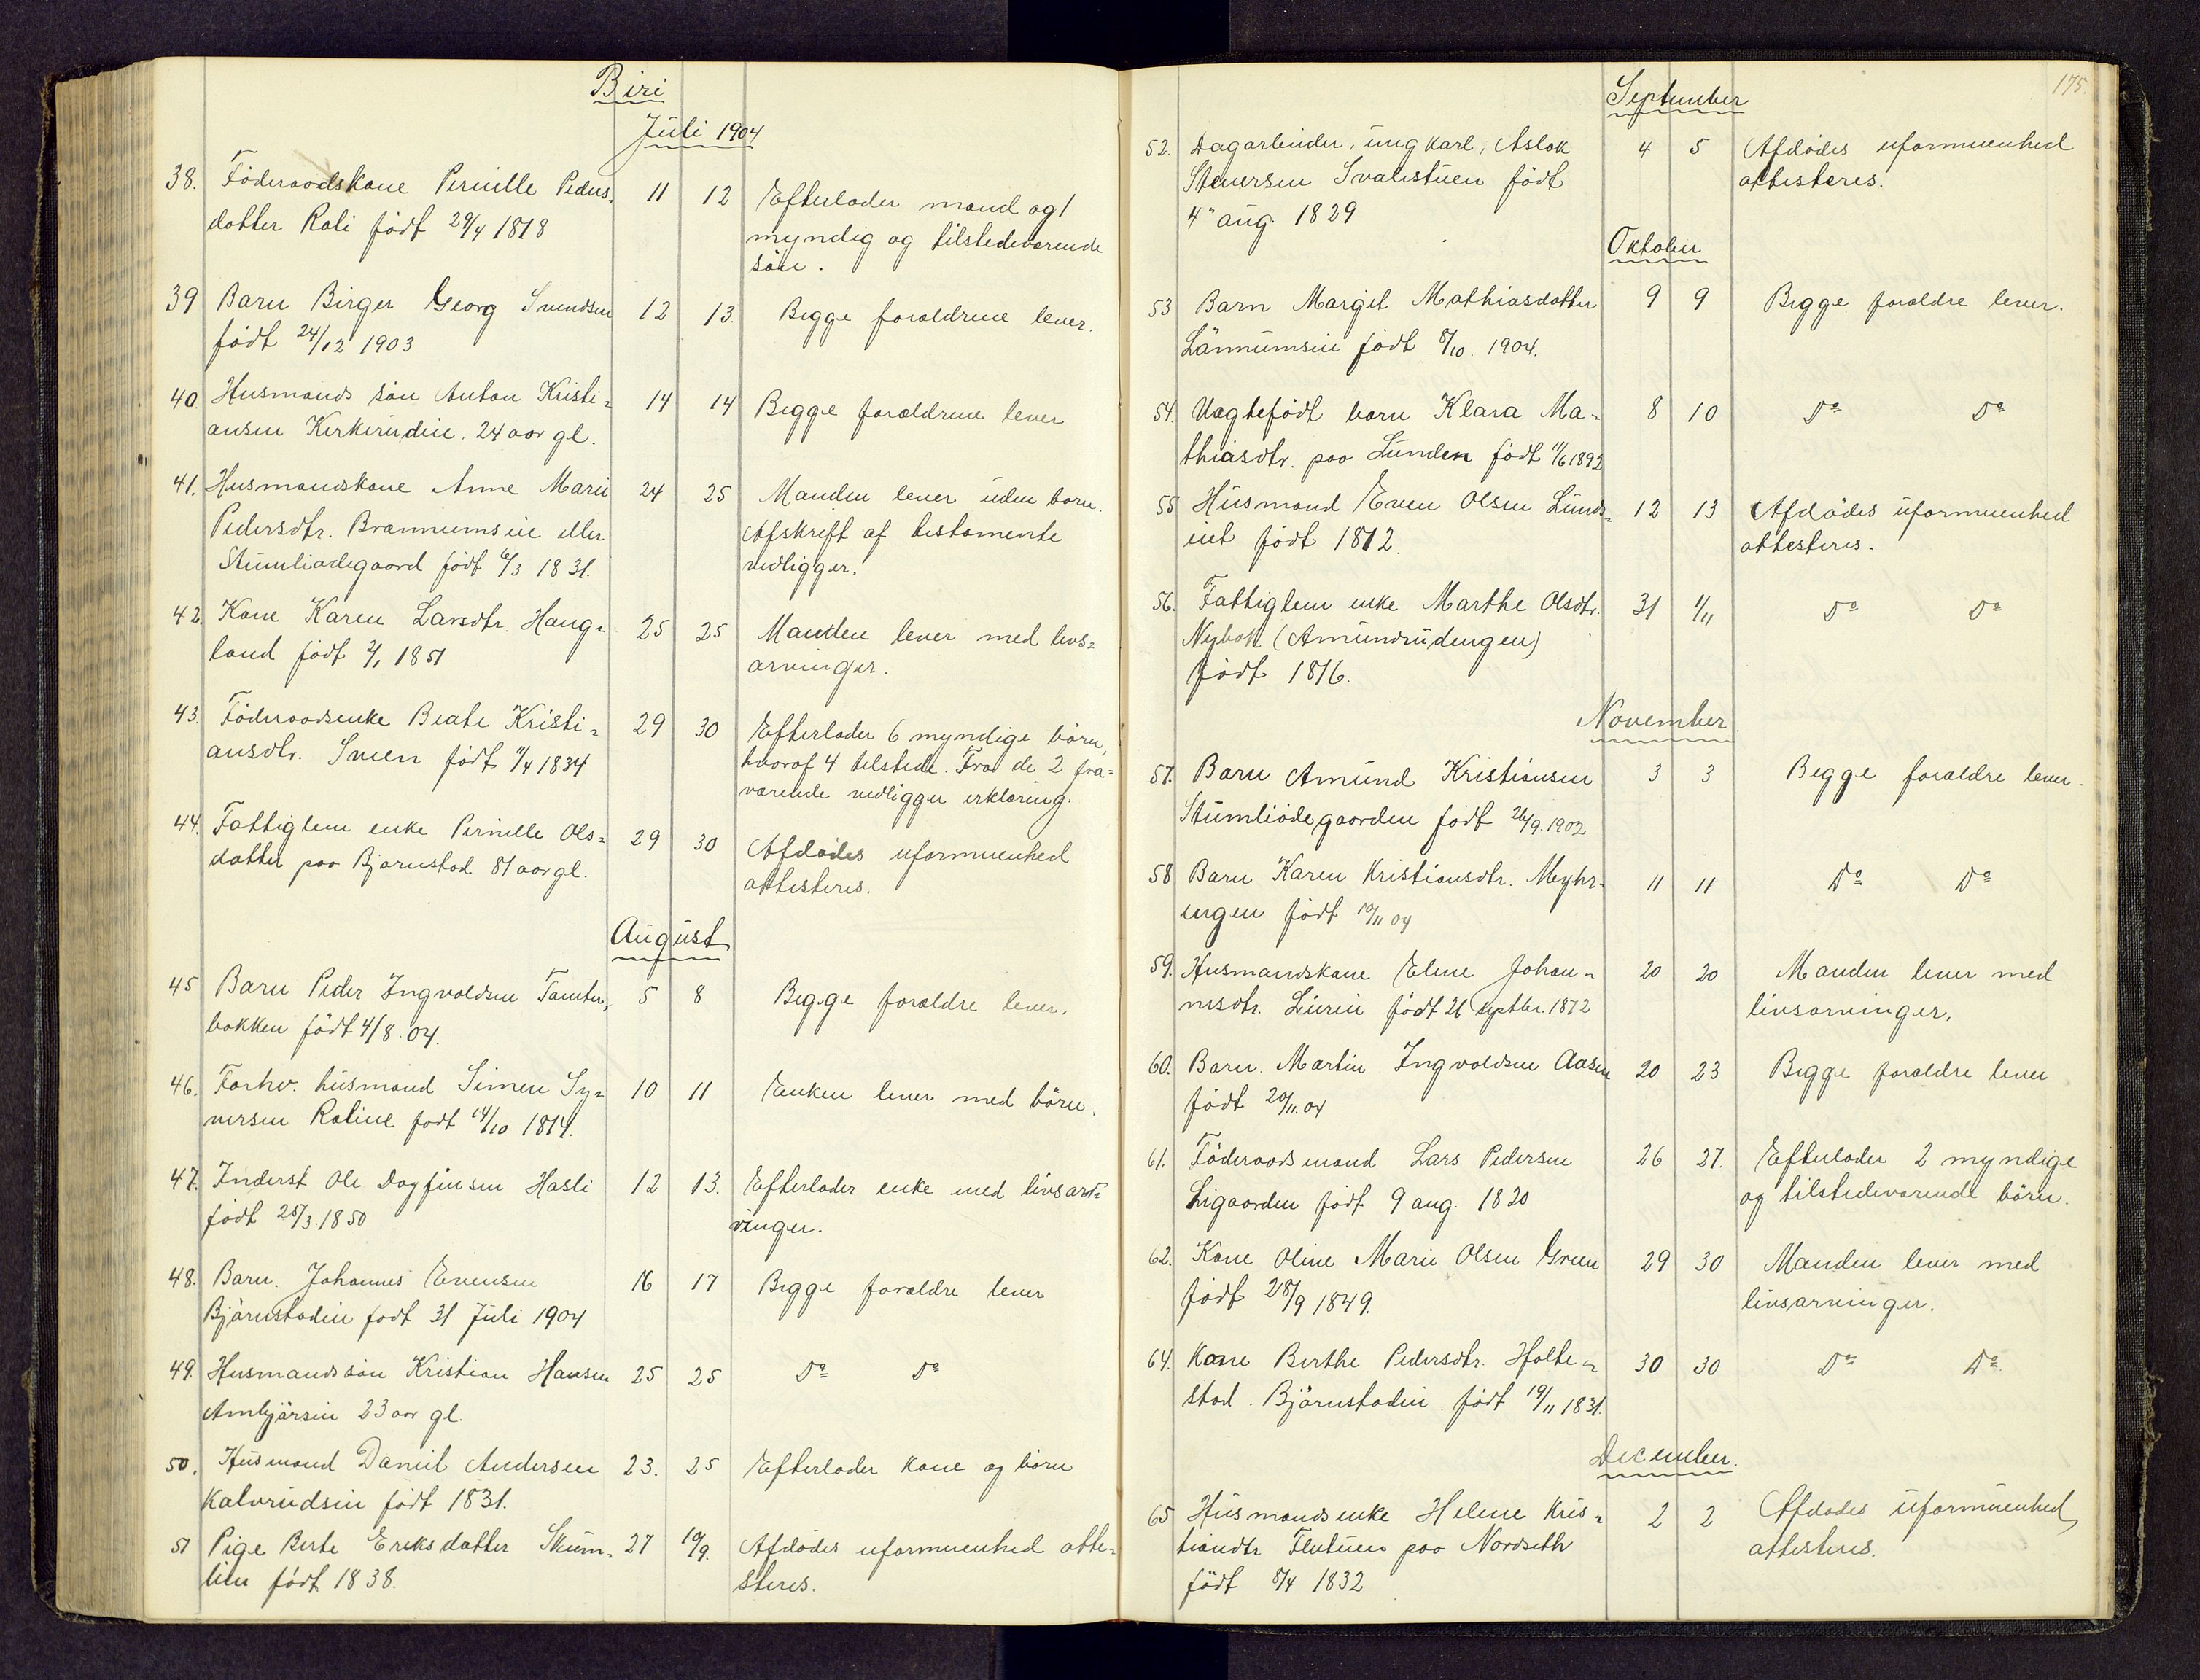 Biri
Juli 1904
38. Föderaadskone Pernille Peders- 11 12 Efterlader mand og 1
datter Roli født 29/4 1818 myndig og tilstedeværende
sön.
39 Barn Birger Georg Svendsen 12 13. Begge forældrene lever.
født 24/12 1903
40. Husmands sön Anton Kristi= 14 14 Begge forældrene lever
ansen 24 aar gl.
41. Husmandskone Anne Marie 24 25 Manden lever uden barn.
Pedersdtr. Brænnumseie eller Afskrift af testamente
Stumliødegaard født 6/3 1831. vedligger.
42. Kone Karen Larsdtr. Haug= 25 25 Manden lever med livs=
land født 2/1 1851 arvinger.
43. Föderaadsenke Beate Kristi= 29 30 Efterlader 6 myndige börn,
ansdtr. Sveen født 1/4 1834 hvoraf 4 tilstede. Fra de 2 fra=
værende vedligger erklæring.
44. Fattiglem enke Pernille Ols= 29 30 Afdödes uformuenhed
datter paa Bjørnstad 81 aar gl. attesteres.
August
45 Barn Peder Ingvoldsen 5 8 Begge forældre lever.
bakken født 4/8.04.
46. Forhv. husmand Simen Sy= 10 11 Enken lever med börn.
versen født 14/10 1814.
47. Inderst Ole Dagfinsen Hasli 12 13. Efterlader enke med livsar=
født 25/3.1850 vinger.
48. Barn. Johannes Evensen 16 17 Begge forældre lever
Bjørnstadeie født 31 Juli 1904
49. Husmandssön Kristian Hansen 25 25 Do Do
23 aar gl.
50. Husmand Daniel Andersen 23. 25 Efterlader kone og börn
Kalvrudseie født 1831.
51 Pige Berte Eriksdatter Skum= 27 10/9. Afdödes uformuenhed atte=
lien født 1838. steres.
175.
September
52. Dagarbeider, ungkarl, Aslak 4 5 Afdödes uformuenhed
Stenersen Svalestuen født attesteres.
4" aug. 1829
Oktober
53 Barn Margit Mathiasdatter 9 9 Begge forældre lever.
Lännumseie født 8/10. 1904.
54. Uægtefödt barn Klara Ma= 8 10 Do Do
thiasdtr. paa Lunden født 11/6 1892
55 Husmand Even Olsen Lunds= 12 13 Afdödes uformuenhed
eiet født 1812. attesteres.
56. Fattiglem enke Marthe Olsdtr. 31 1/11 Do Do
Nybak (Amundrudengen)
født 1816.
November
57. Barn Amund Kristiansen 3 3 Begge forældre lever.
Stumliødegaarden født 26/9.1902
58 Barn Karen Kristiansdtr. 11 11 Do Do
engen født 10/11 04
59. Husmandskone Eline Johan= 20 20 Manden lever med
nesdtr. født 26 septbr. 1872 livsarvinger.
60. Barn. Martin Ingvoldsen Aasen 20 23 Begge forældre lever
født 20/11.04
61. Föderaadsmand Lars Pedersen 26 27. Efterlader 2 myndige
Ligaarden født 9 aug. 1820 og tilstedeværende börn.
62. Kone Oline Marie Olsen Green 29 30 Manden lever med
født 28/9 1849. livsarvinger.
64. Kone Berthe Pedersdtr. Holte= 30 30 Do Do
stad. Bjørnstadeie født 19/11 1831.
December.
65 Husmandsenke Helene Kris= 2 2 Afdödes uformuenhed
tiandtr paa Nordseth attesteres.
født 8/4 1832